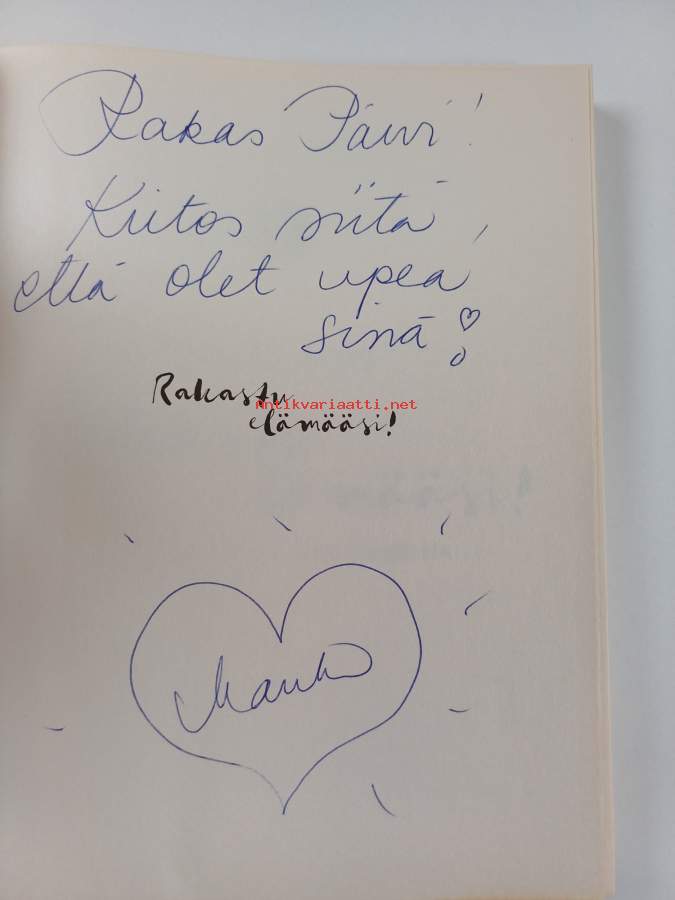 Rakas Päivi!
Kiitos siitä,
että olet upea
sinä!
Rakastu
antikvariaatti.net
elämääsi!